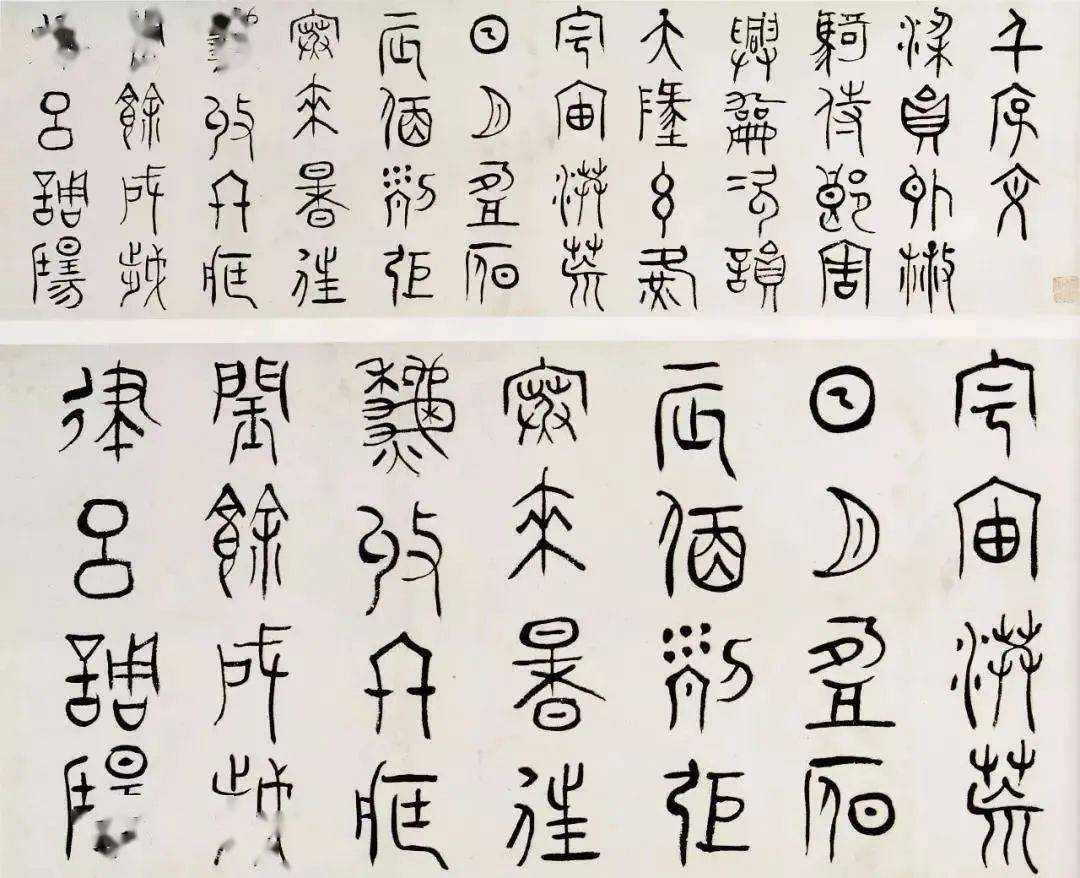 千字文
梁員外散
騎侍郎周
興嗣次韻
天地玄黃
宇宙洪荒
日月盈昃
辰宿列張
寒來暑往
收冬藏
餘成歲
呂調陽
宇宙洪荒
日月盈昃
辰宿列張
寒來暑往
秋收冬藏
閏餘成歲
律呂調陽